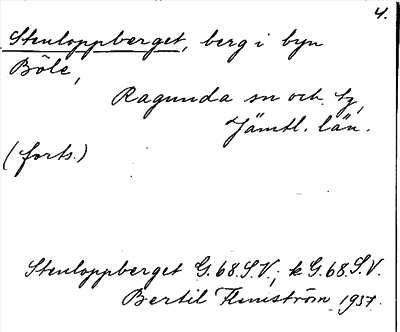 4.
Stenloppberget, berg i byn
Böle,
Ragunda sn och tg,
Jämtl. län.
(forts.)
Stenloppberget G.68.S.V., k G.68.S.V.
Bertil Flemström 1937.